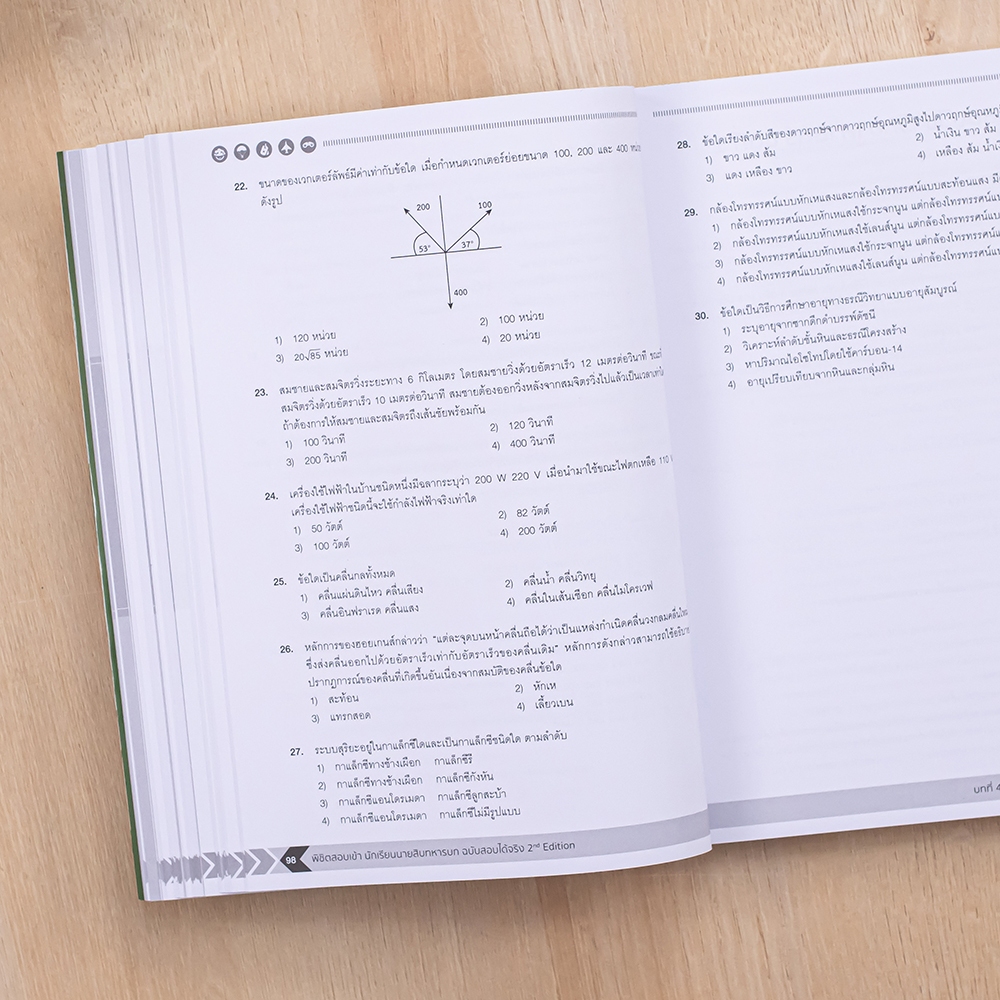 22. ขนาดของเวกเตอร์ลัพธ์มีค่าเท่ากับข้อใด เมื่อกำหนดเวกเตอร์ย่อยขนาด 100, 200 และ 400 หน่วย
ดังรูป
200
100
53°
37°
400
1) 120 หน่วย
2) 100 หน่วย
3) 20√85 หน่วย
4) 20 หน่วย
23. สมชายและสมจิตรวิ่งระยะทาง 6 กิโลเมตร โดยสมชายวิ่งด้วยอัตราเร็ว 12 เมตรต่อวินาที
สมจิตรวิ่งด้วยอัตราเร็ว 10 เมตรต่อวินาที สมชายต้องออกวิ่งหลังจากสมจิตรวิ่งไปแล้วเป็นเวลาเท่าใด
ถ้าต้องการให้สมชายและสมจิตรถึงเส้นชัยพร้อมกัน
1) 100 วินาที
2) 120 วินาที
3) 200 วินาที
4) 400 วินาที
24. เครื่องใช้ไฟฟ้าในบ้านชนิดหนึ่งมีฉลากระบุว่า 200 W 220 V เมื่อนำมาใช้ขณะไฟตกเหลือ 110
เครื่องใช้ไฟฟ้าชนิดนี้จะใช้กำลังไฟฟ้าจริงเท่าใด
1) 50 วัตต์
2) 82 วัตต์
3) 100 วัตต์
4) 200 วัตต์
25. ข้อใดเป็นคลื่นกลทั้งหมด
1) คลื่นแผ่นดินไหว คลื่นเสียง
2) คลื่นน้ำ คลื่นวิทยุ
3) คลื่นอินฟราเรด คลื่นแสง
4) คลื่นในเส้นเชือก คลื่นไมโครเวฟ
26. หลักการของฮอยเกนส์กล่าวว่า "แต่ละจุดบนหน้าคลื่นถือได้ว่าเป็นแหล่งกำเนิดคลื่นวงกลมคลื่นใหม่
ซึ่งส่งคลื่นออกไปด้วยอัตราเร็วเท่ากับอัตราเร็วของคลื่นเดิม" หลักการดังกล่าวสามารถใช้อธิบาย
ปรากฏการณ์ของคลื่นที่เกิดขึ้นอันเนื่องจากสมบัติของคลื่นข้อใด
1) สะท้อน
2) หักเห
3) แทรกสอด
4) เลี้ยวเบน
27. ระบบสุริยะอยู่ในกาแล็กซีใดและเป็นกาแล็กซีชนิดใด ตามลำดับ
1) กาแล็กซีทางช้างเผือก กาแล็กซีรี
2) กาแล็กซีทางช้างเผือก กาแล็กซีกังหัน
3) กาแล็กซีแอนโดรเมดา กาแล็กซีลูกสะบ้า
4) กาแล็กซีแอนโดรเมดา กาแล็กซีไม่มีรูปแบบ
98 พิชิตสอบเข้า นักเรียนนายสิบทหารบก ฉบับสอบได้จริง 2nd Edition
28. ข้อใดเรียงลำดับสีของดาวฤกษ์จากดาวฤกษ์อุณหภูมิสูงไปดาวฤกษ์อุณหภูมิ
1) ขาว แดง ส้ม
2) น้ำเงิน ขาว ส้ม
3) แดง เหลือง ขาว
4) เหลือง ส้ม น้ำเงิน
29. กล้องโทรทรรศน์แบบหักเหแสงและกล้องโทรทรรศน์แบบสะท้อนแสง
1) กล้องโทรทรรศน์แบบหักเหแสงใช้กระจกนูน แต่กล้องโทรทรรศน์แบบ
2) กล้องโทรทรรศน์แบบหักเหแสงใช้เลนส์นูน แต่กล้องโทรทรรศน์
3) กล้องโทรทรรศน์แบบหักเหแสงใช้กระจกนูน แต่กล้องโทรทรรศน์
4) กล้องโทรทรรศน์แบบหักเหแสงใช้เลนส์นูน แต่กล้องโทรทรรศน์
30. ข้อใดเป็นวิธีการศึกษาอายุทางธรณีวิทยาแบบอายุสัมบูรณ์
1) ระบุอายุจากซากดึกดำบรรพ์ดัชนี
2) วิเคราะห์ลำดับชั้นหินและธรณีโครงสร้าง
3) หาปริมาณไอโซโทปโดยใช้คาร์บอน-14
4) อายุเปรียบเทียบจากหินและกลุ่มหิน
บทที่ 4